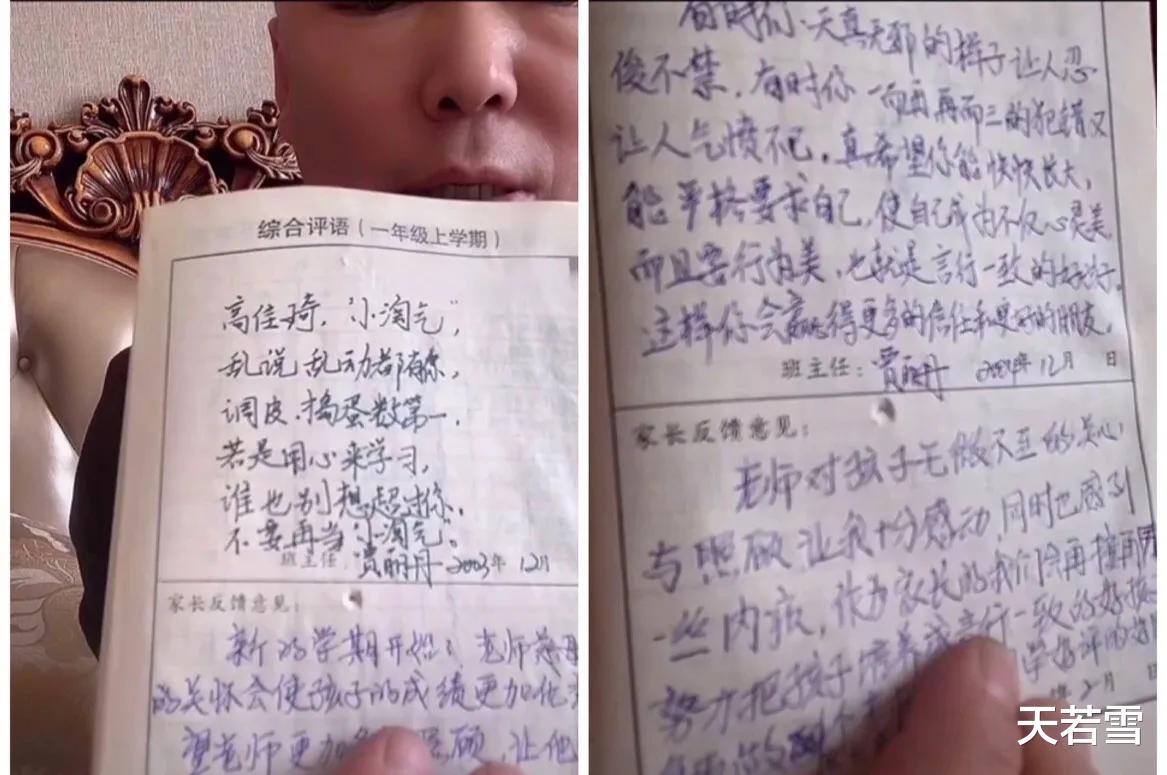 综合评语（一年级上学期）
高佳琦，“小淘气”，
乱说乱动都有你，
调皮.捣蛋数第一，
若是用心来学习，
谁也别想超过你，
不要再当“小淘气”。
班主任 贾丽丹 2003年 12月
家长反馈意见：
新的学期开始；老师慈母
的关怀会使孩子的成绩更加优
望老师更加 照顾，让他
有时你天真无邪的样子让人忍
俊不禁，有时你一而再再而三的犯错又
让人气愤不已，真希望你能快快长大，
能严格要求自己，使自己成为不仅心灵美
而且要行为美，也就是言行一致的好孩
这样你会赢得更多的信任和更好的朋友，
班主任：贾丽丹 年12月 日
家长反馈意见：
老师对孩子无微不至的关心
与照顾让我十分感动，同时也感到
一丝内疚，作为家长的我们会再接再
努力把孩子培养成言行一致的好孩
年2月 日
天若雪